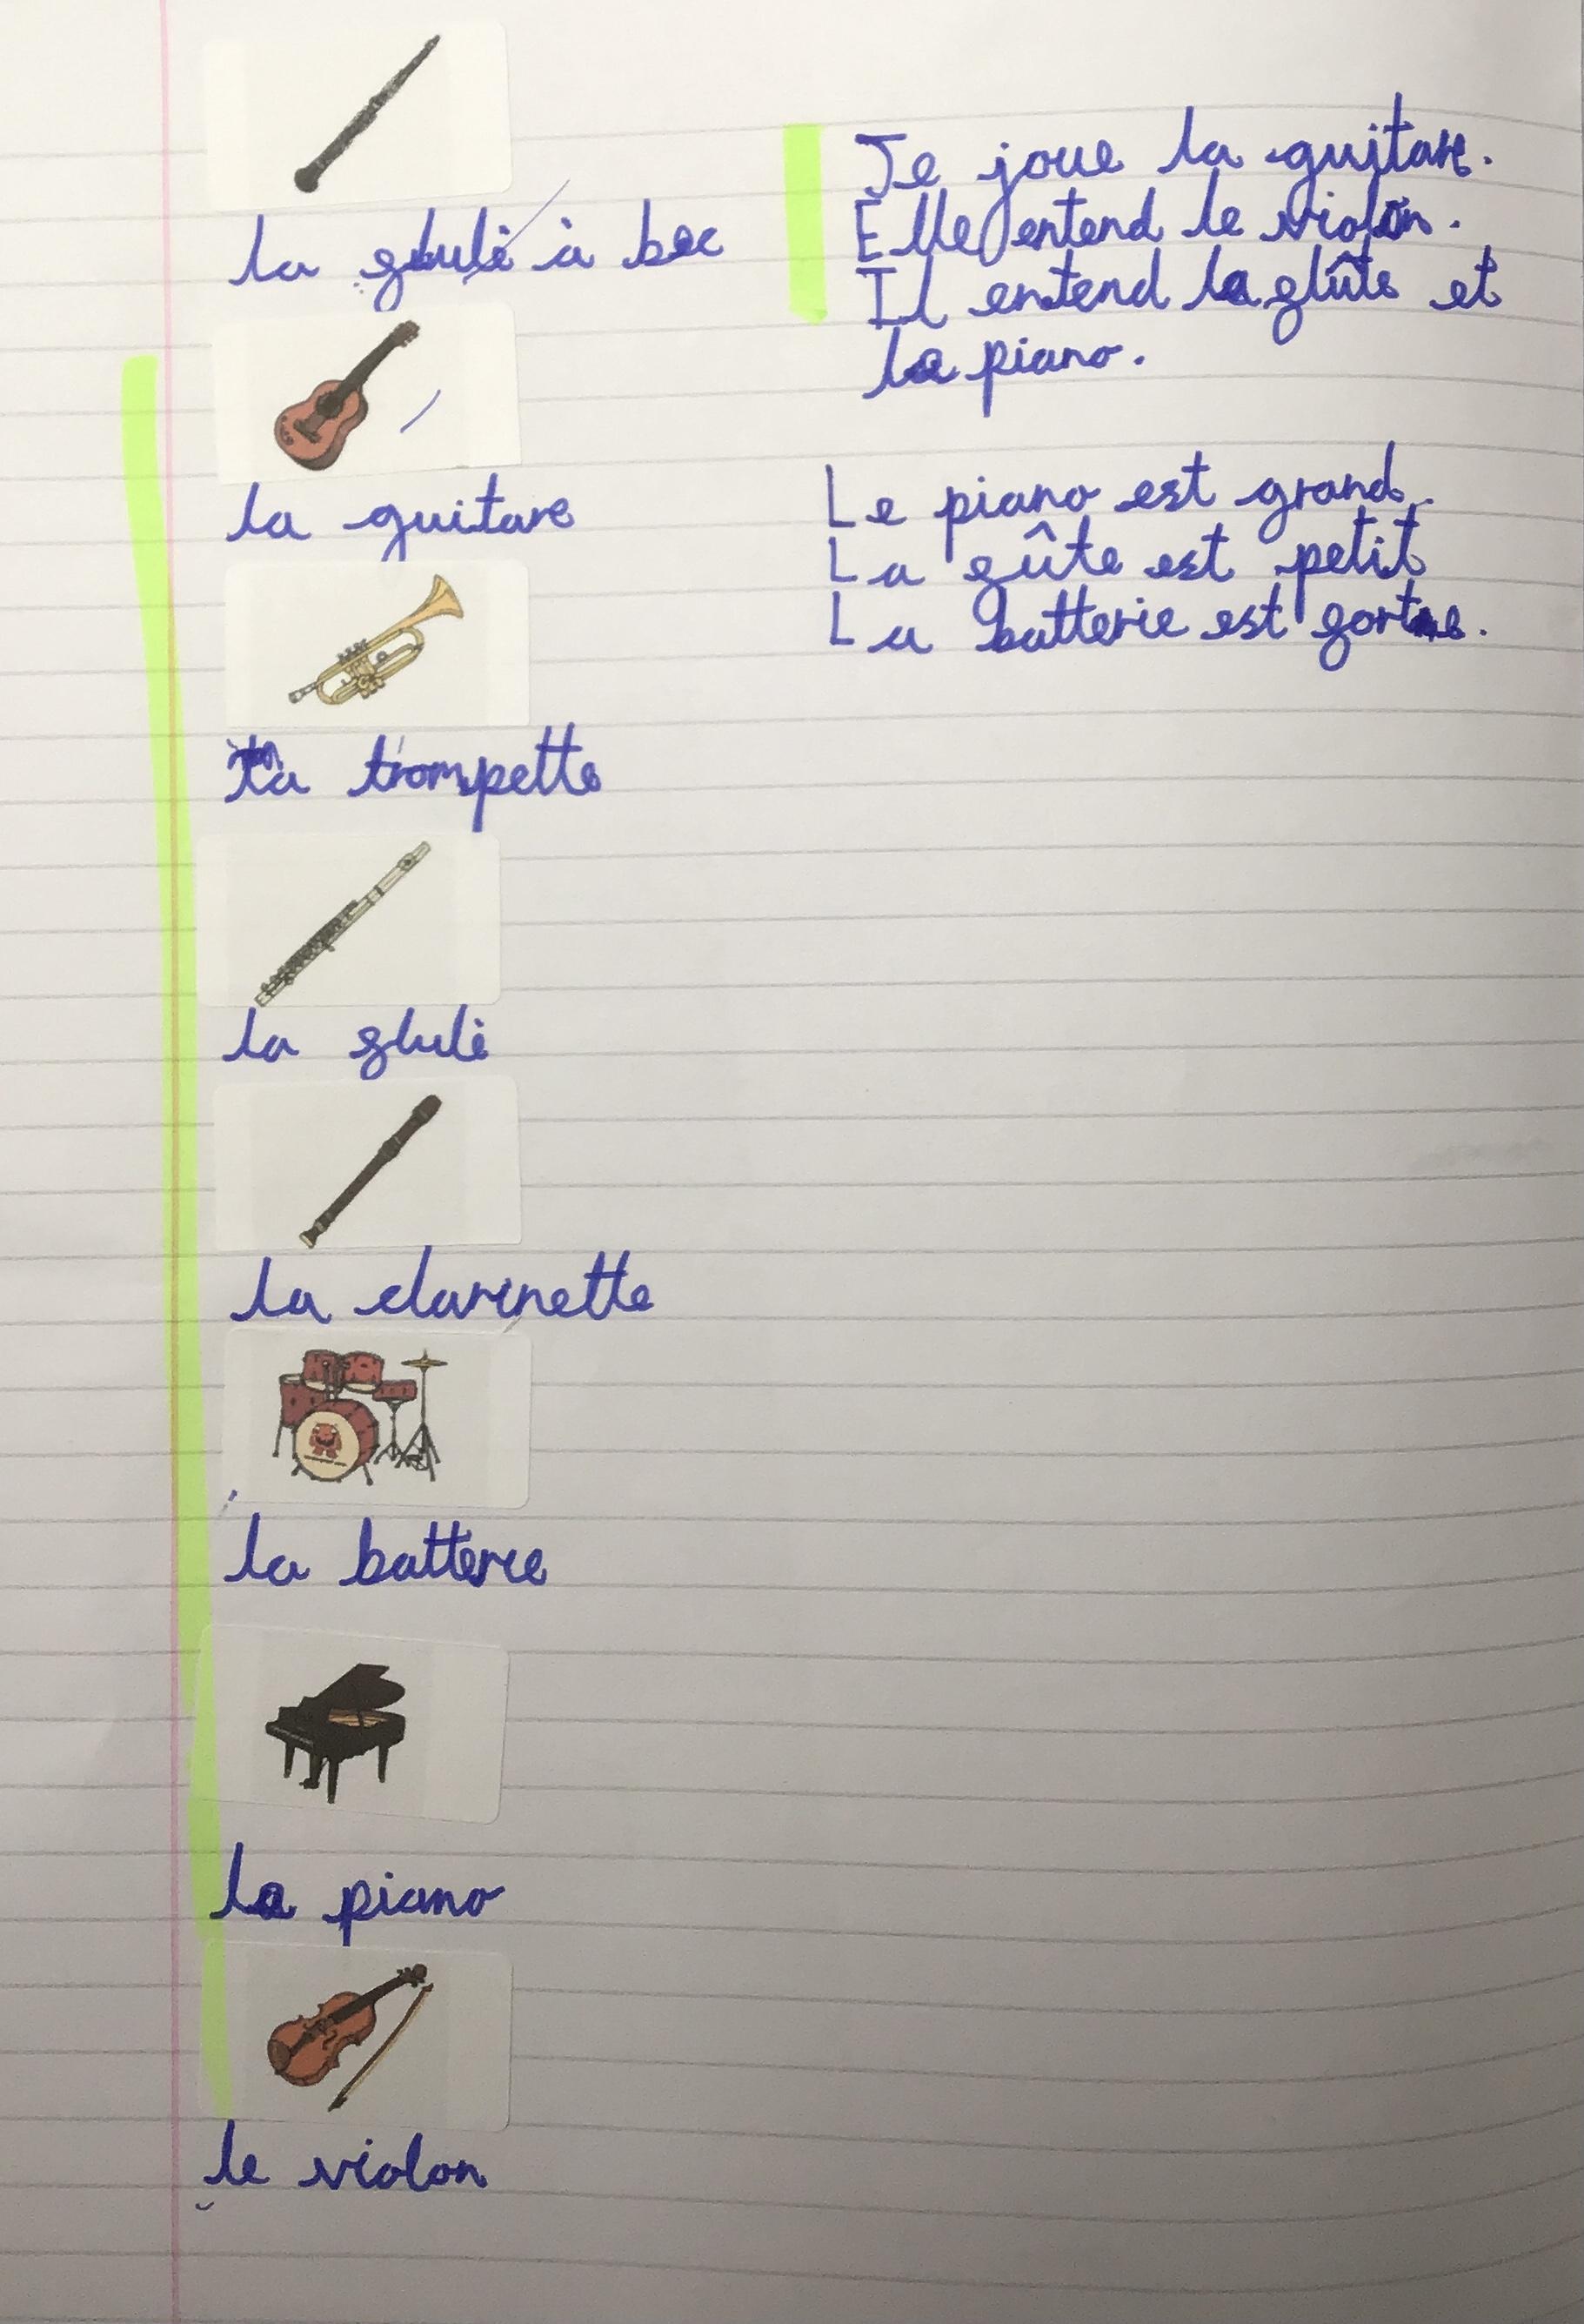 la flulè à bec
la guitare
la trompette
la flulè
la clarinette
la batterie
le piano
le violon
Je joue la guitare.
Elle entend le violon.
Il entend la flûte et
le piano.
Le piano est grand.
La fûte est petit
La batterie est